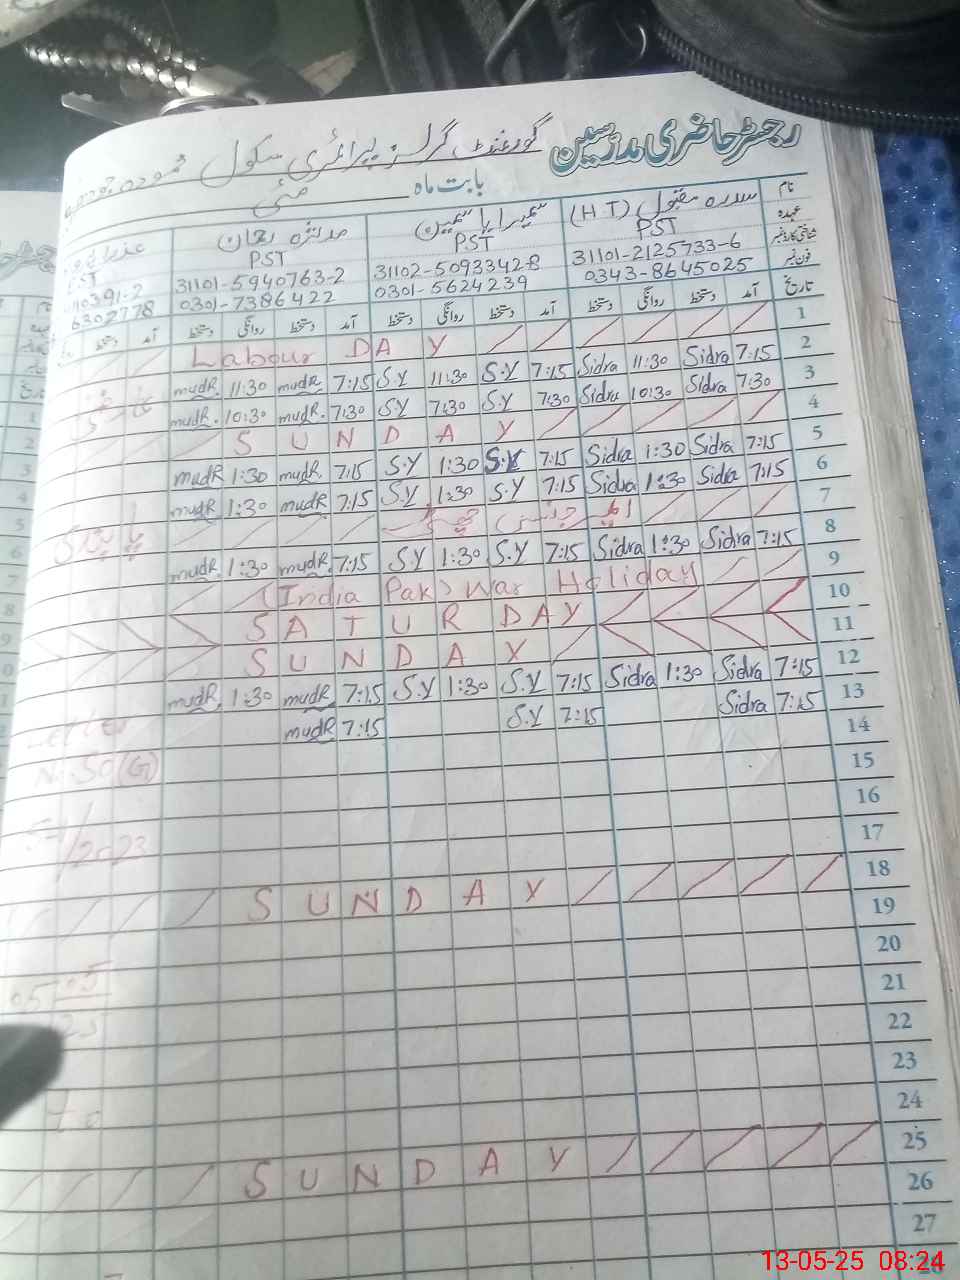 رجسٹر حاضری مدرسین گورنمنٹ گرلز پرائمری سکول
بابت ماہ مئی
نام سدرہ مقبول (H.T)
عہدہ PST PST PST PST
شناختی کارڈ نمبر 31101-2125733-6 31102-5093342-8 31101-5940763-2 110391-2
فون نمبر 0343-8645025 0301-5624239 0301-7386422 6302778
تاریخ آمد دستخط روانگی دستخط آمد دستخط روانگی دستخط آمد دستخط روانگی دستخط آمد دستخط
1 Labour DAY
2 7:15 Sidra 11:30 Sidra 7:15 S.Y 11:30 S.Y 7:15 mudR. 11:30 mudR.
3 7:30 Sidra 10:30 Sidra 7:30 S.Y 7:30 S.Y 7:30 mudR. 10:30 mudR.
4 SUNDAY
5 7:15 Sidra 1:30 Sidra 7:15 S.Y 1:30 S.Y 7:15 mudR. 1:30 mudR.
6 7:15 Sidra 1:30 Sidra 7:15 S.Y 1:30 S.Y 7:15 mudR. 1:30 mudR.
7
8 7:15 Sidra 1:30 Sidra 7:15 S.Y 1:30 S.Y 7:15 mudR. 1:30 mudR.
9 (India Pak) War Holiday
10 SATURDAY
11 SUNDAY
12 7:15 Sidra 1:30 Sidra 7:15 S.Y 1:30 S.Y 7:15 mudR. 1:30 mudR.
13 7:15 Sidra 7:15 S.Y 7:15 mudR.
14
15
16
17
18 SUNDAY
19
20
21
22
23
24
25 SUNDAY
26
27
28
Letter
No. 50(G)
/2023
13-05-25 08:24